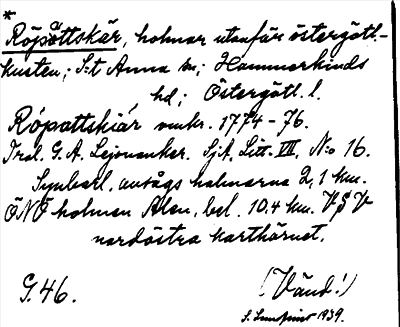 *
Röpåttskär, holmar utanför östergötl.-
kusten; S:t Anna sn; Hammarkinds
hd; Östergötl. l.
Röpattskiär omkr. 1774-76.
Tral. G. A. Lejonanker. SjA, Litt. VIII, N:o 16.
Synbarl. avsågs holmarna 2,1 km.
ÖNÖ holmen Alen, bel. 10.4 km. V§V
nordöstra karthörnet.
G. 46.
(Vänd!)
1939.